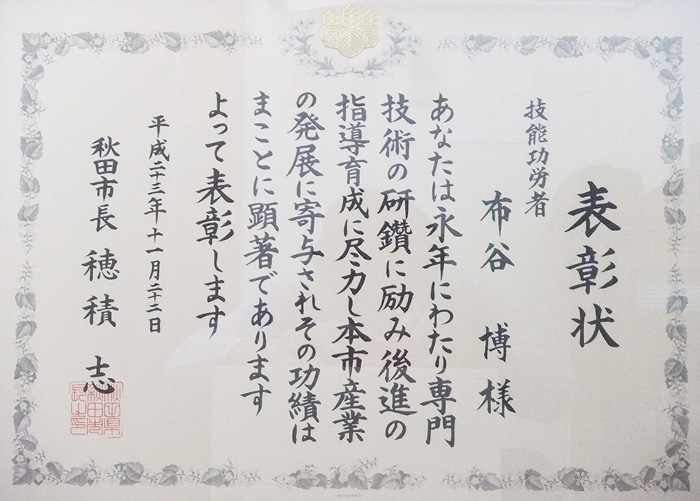 表彰状
技能功労者
布谷 博 様
あなたは永年にわたり専門
技術の研鑽に励み後進の
指導育成に尽力し本市産業
の発展に寄与されその功績は
まことに顕著であります
よって表彰します
平成二十三年十一月二十二日
秋田市長 穂積 志